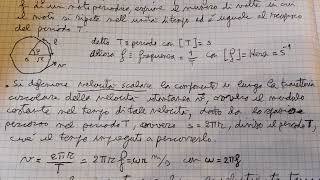 f di un moto periodico, esprime il numero di volte in cui
il moto si ripete nell'unità tempo ed è uguale al reciproco
del periodo T.
detto T = periodo con [T] = s
allora f = frequenza = 1/T con [f] = Hertz = s⁻¹
• Si definisce velocità scalare la componente v lungo la traiettoria
circolare della velocità istantanea v⃗, ovvero il modulo
costante nel tempo di tale velocità, dato da lo spazio
percorso nel periodo T, ovvero s = 2πr, diviso il periodo T,
cioè il tempo impiegato a percorrerlo.
v = 2πr/T = 2πrf = ωr m/s con ω = 2πf